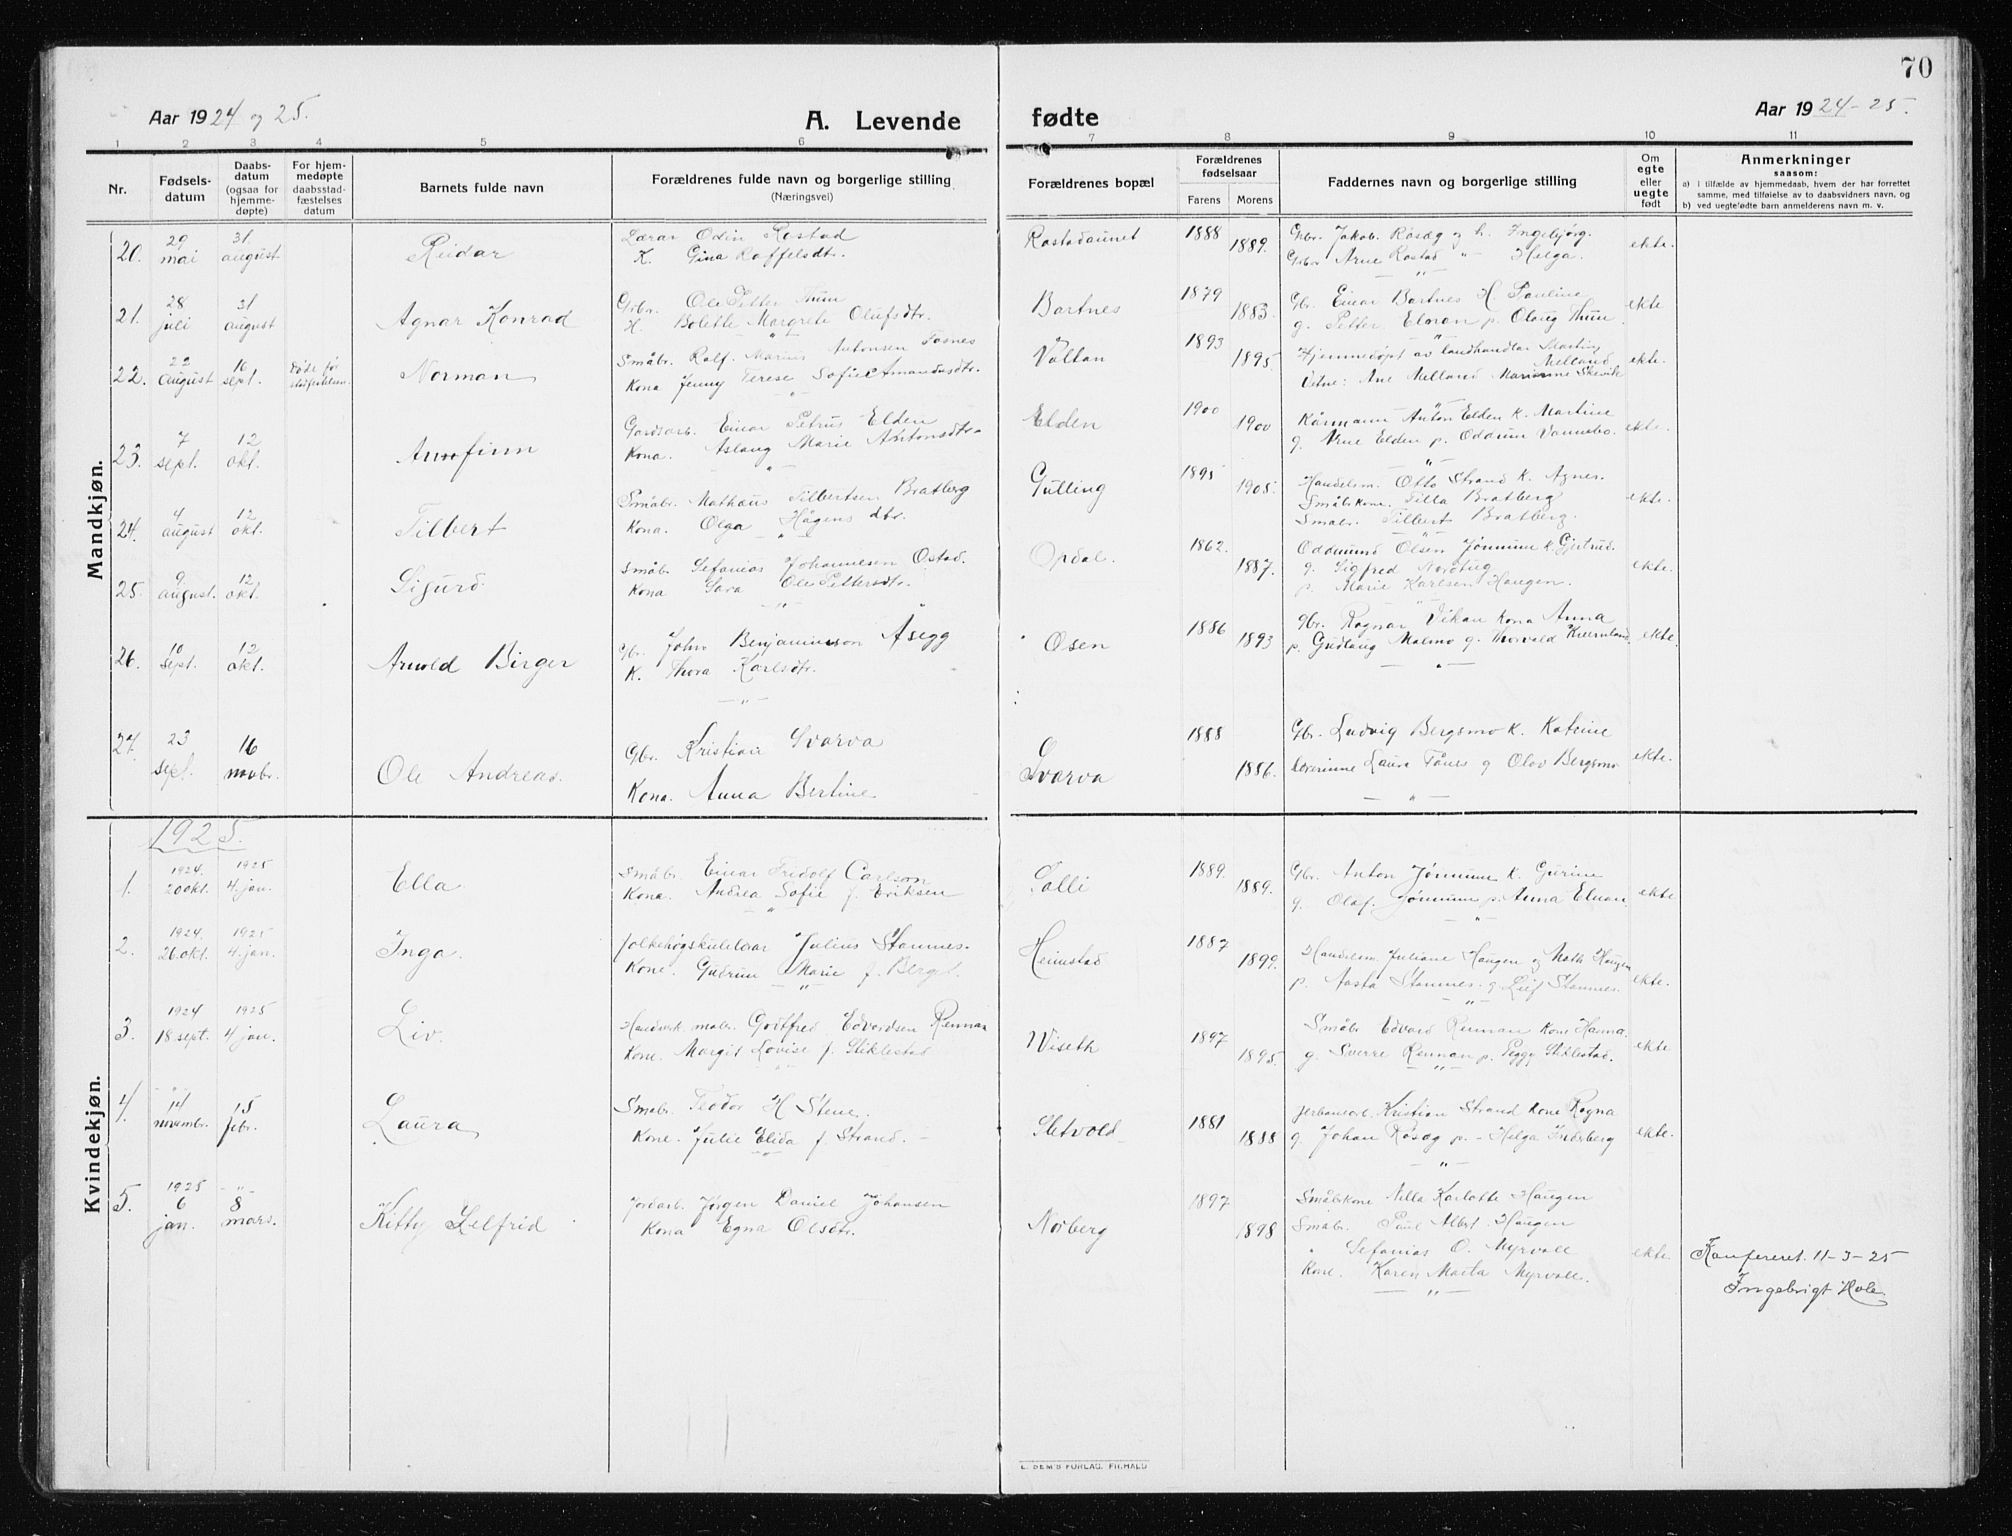 70
Aar 1924 og 25.
A. Levende fødte
Aar 1924-25.
1 2 3 4 5 6 7 8 9 10 11
Nr.
Fødsels-datum
Daabs-datum (ogsaa for hjemme-døpte)
For hjem-medøpte daabsstad-fæstelses datum
Barnets fulde navn
Forældrenes fulde navn og borgerlige stilling
(Næringsvei)
Forældrenes bopæl
Forældrenes fødselsaar
Farens Morens
Faddernes navn og borgerlige stilling
Om egte eller uegte født
Anmerkninger
saasom:
a) i tilfælde av hjemmedaab, hvem der har forrettet samme, med tilføielse av to daabsvidners navn, og
b) ved uegtefødte barn anmelderens navn m. v.
Mandkjøn.
20. 29 mai 31. august Reidar
Lærar Odin Rostad
K. Gina Roffelsdtr.
Rostadaunet 1888 1889.
Gbr. Jakob Røsæg og h. Ingebjørg.
Grbr Arne Rostad " Helga.
ekte.
21. 28 juli 31 august Agnar Konrad
Grbr. Ole Petter Thun
H. Bolette Margrete Olufsdtr.
Bartnes 1879 1883.
Gbr. Einar Bartnes H. Pauline
g. Petter Elnan p. Olaug Thun
ekte
22. 22 august 16 sept. Døde før Norman
Småbr. Ralf. Marius Antonsen Fosnes
Kona Jenny Terese Sofie Amandusdtr.
Våttan 1893 1895.
Hjemmedøpt av landhandlar Martin Melland
Vitne: Ane Melland Marianne Skevik
ekte.
23. 7 sept. 12 okt. Arnfinn
Gardsarb. Einar Petrus Elden
Kona. Aslaug Marie Antonsdtr.
Elden 1900 1900
Kårmann Anton Elden K. Martine
g. Arne Elden p. Oddrun Vannebo.
ekte.
24. 4 august 12 okt. Tilbert
Småbr. Mathæus Tilbertsen Bratberg
Kona. Olga Hågensdtr.
Gulling 1895 1905.
Handelsm. Otto Strand K. Agnes.
Småbrkone. Tilla Bratberg
Småbr. Tilbert Bratberg.
ekte.
25. 9 august. 12 okt. Sigurd
Småb. Sefanias Johannesen Ostad.
Kona Sara Ole Pettersdtr.
Opdal. 1862. 1887.
Oddmund Olsen Jønnum K. Gjertrud.
g. Sigfred Nordtug
p. Marie Karlsen Haugen.
ekte.
26. 10 sept. 12 okt. Arnold Birger
Gbr. John Benjaminson Åsegg
K. Thora Karlsdtr.
Osen 1886 1893
Gbr. Ragnar Vikan Kona Anna
p. Gudlaug Malmo g. Thorvald Kvernland
ekte.
27. 23 sept. 16 novbr. Ole Andreas.
Gbr. Kristian Svarva
Kona. Anna Bertine
Svarva 1888 1886.
Gbr. Ludvig Bergsmo K. Katrine
Lærerinne Laura Tønes g Olav Bergsmo
ekte.
Kvindekjøn.
1925.
1. 1924. 20 okt. 1925 4. jan. Ella
Småbr. Einar Fridolf Carlson
Kona. Andrea Sofie f. Eriksen
Solli 1889. 1889.
Gbr. Anton Jønnum K. Gurine
g. Olaf. Jønnum p. Anna Elnan.
ekte
2. 1924. 26. okt. 1925 4. jan. Inga.
Folkehøgskulelærar Julius Stamnes.
Kone. Gudrun Marie f. Berg.
Heimstad 1887 1899.
Handelsm. Juliane Haugen og Math Haugen
p. Aasta Stamnes. g Leif Stamnes.
ekte.
3. 1924 18. sept. 1925 4 jan. Liv.
Handverk. maler. Gotfred Edvardsen Rennan
Kone. Margit Lovise f. Stiklestad
Wiseth 1897 1895.
Småbr Edvard Rennan Kone Hanna.
g. Sverre Rennan p. Peggy Stiklestad.
ekte
4. 14 novembr. 15 febr. Laura
Småbr. Teodor H Stene.
Kone. Julie Elida f. Strand.
Sletvold. 1881 1888
Jerbanearb. Kristian Strand kone Ragna
g. Johan Røsæg p. - Helga Inderberg
ekte.
5. 1925 6 jan. 8 mars. Kitty Selfrid
Jordarb. Jørgen Daniel Johansen
Kona Egna Olsdtr.
Norberg 1897 1898
Småbrkone Nilla Karlotte Haugen
Småbr. Paul Albert Haugen
" Sefanias O. Myrvold
Kone. Karen Marta Myrvold.
ekte.
Konfereret. 11-3-25
Ingebrigt Hole.
E. SEM'S FORLAG. FR.HALD